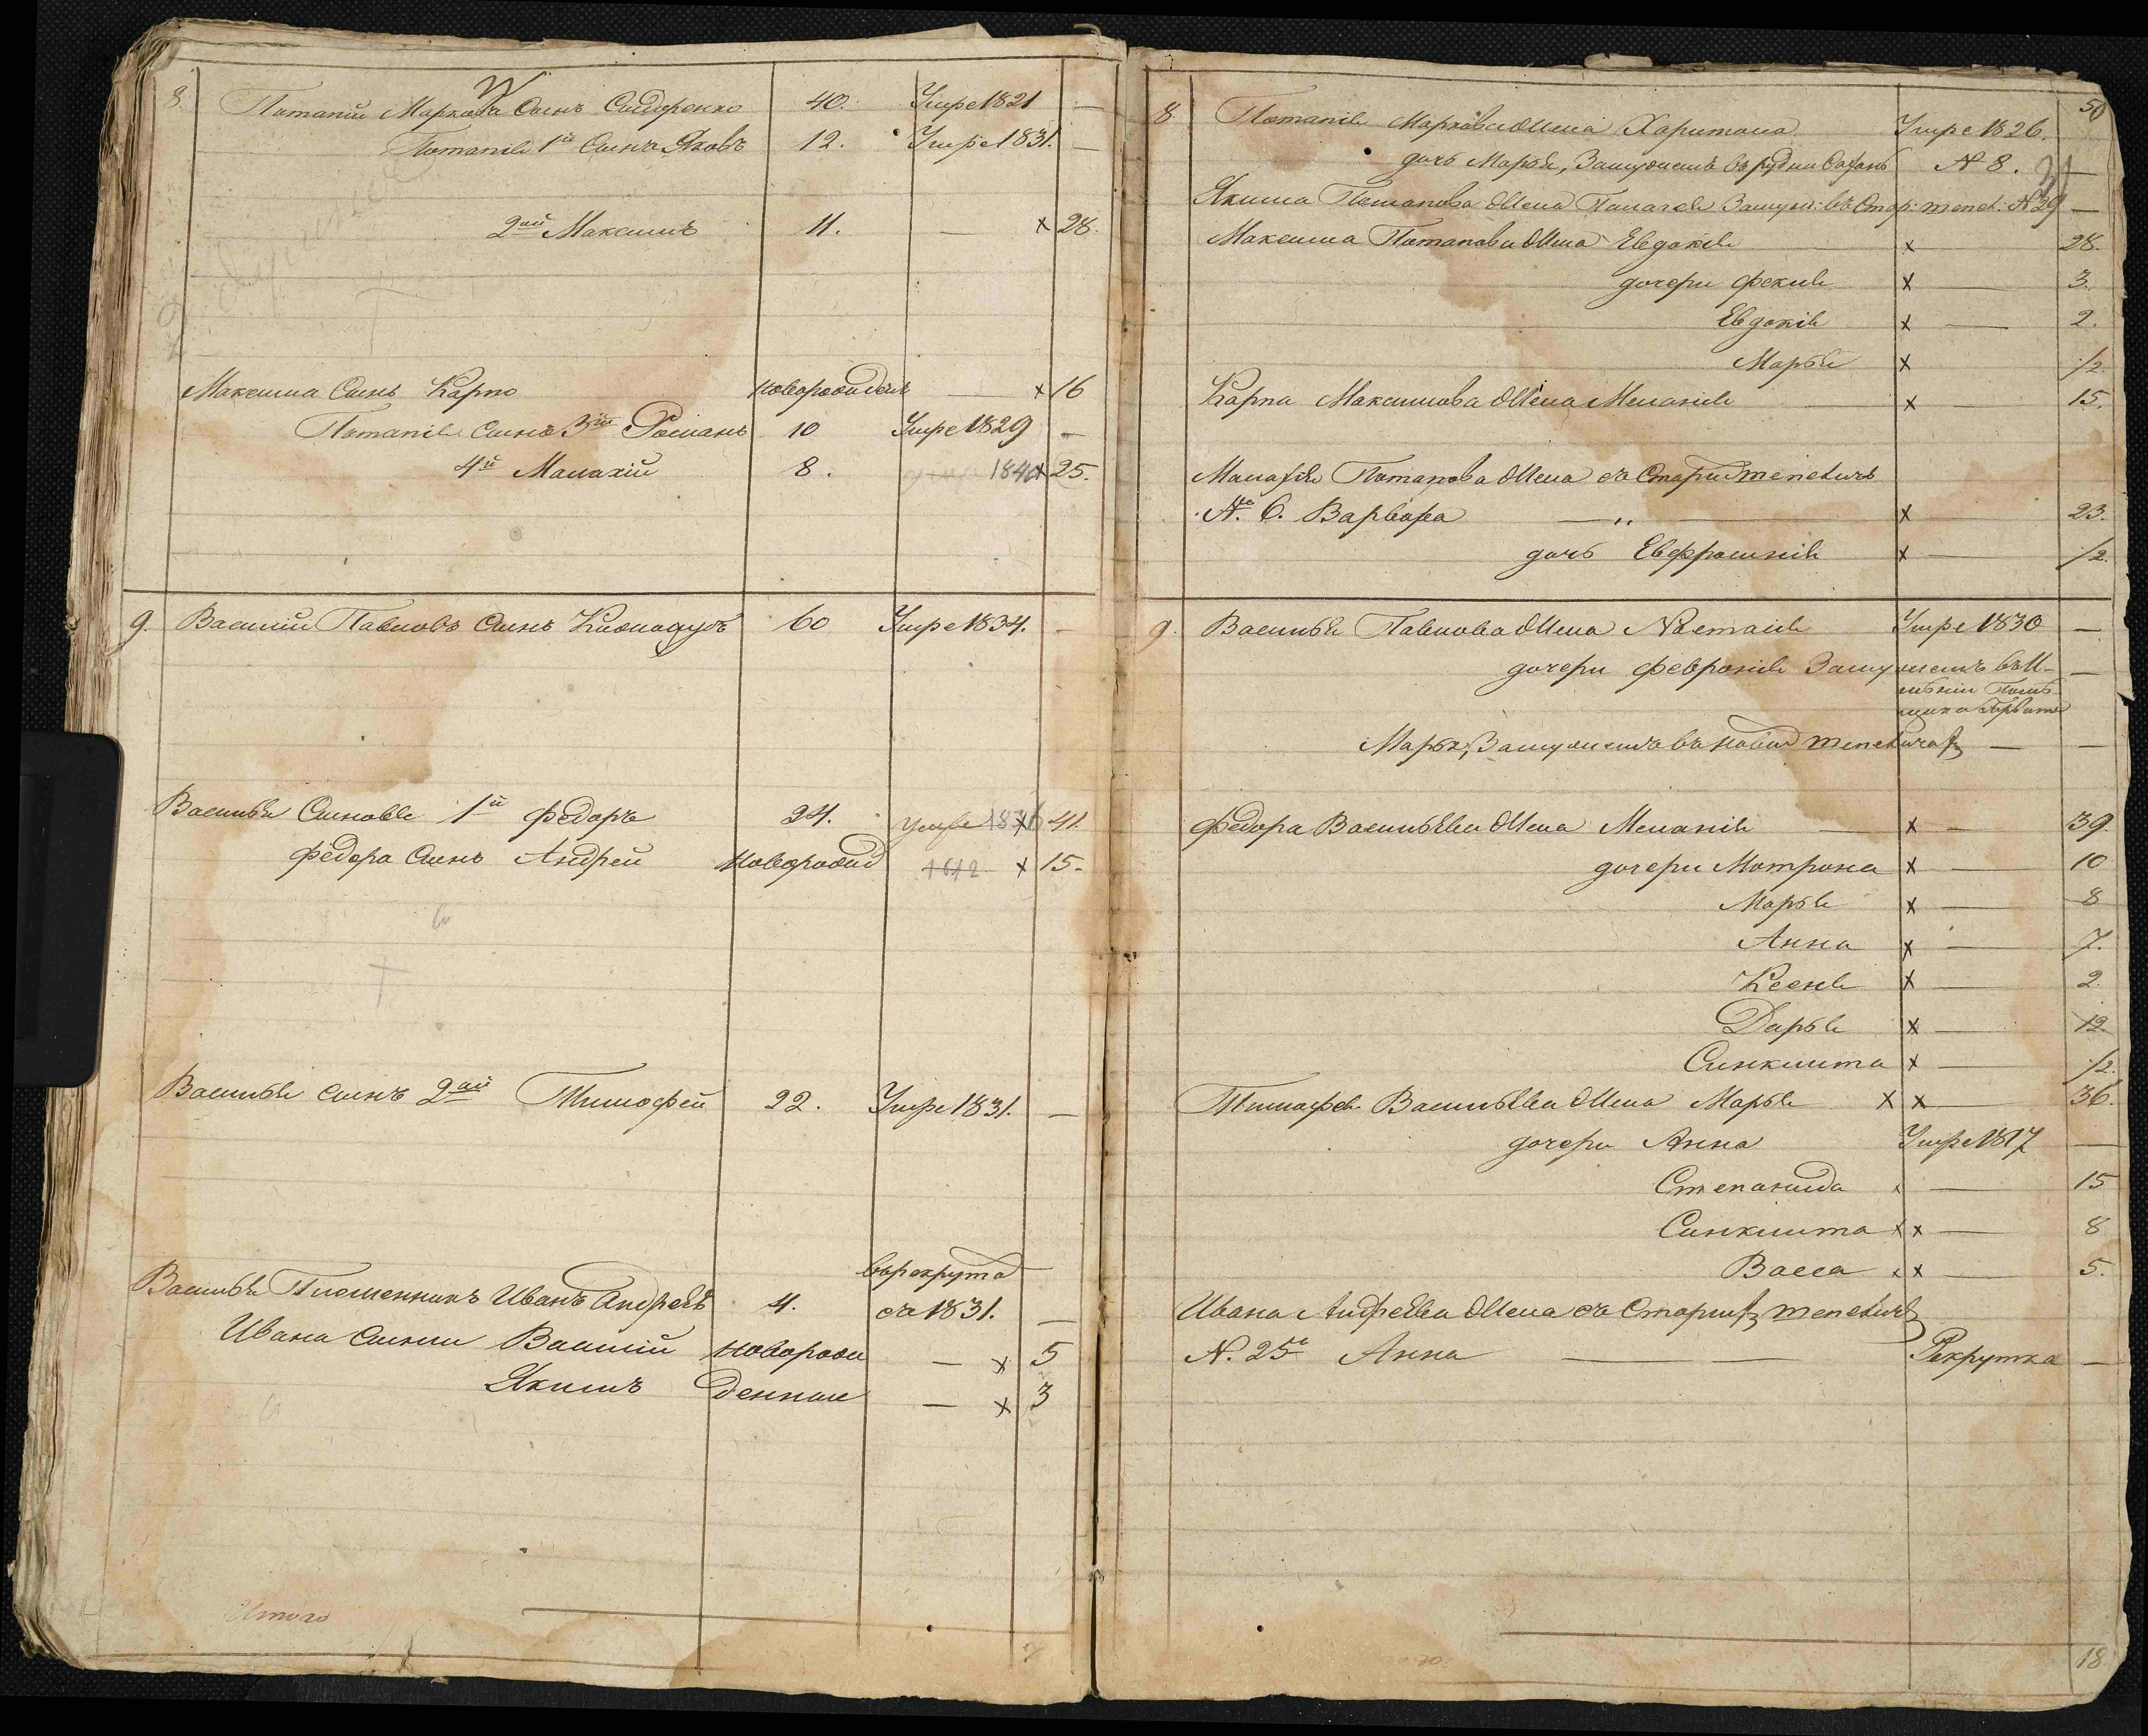 8. Потапій Маркова Сынъ Сидоренко 40. Умре 1821 —
Потапія 1й Сынъ Яковъ 12. Умре 1831. —
2ой Максимъ 11. — х 28.
Максима Сынъ Карпо новорожден — х 16
Потапія Сынъ 3й Романъ 10 Умре 1829 —
4й Малахій 8. 1840 х 25.
9. Василій Павловъ Сынъ 60 Умре 1834. —
Василья Сыновья 1й Федоръ 24. умре 41.
Федора Сынъ Андрей новорожд х 15.
Василья сынъ 2ой Тимофей 22. Умре 1831. —
Василья Племенникъ Иванъ Андреевъ 4. въ рекрута съ 1831. —
Ивана Сыны Василій новорож — х 5
Якимъ денные — х 3
Итого
50
8 Потапія Маркова Жена Харитона Умре 1826.
дочь Марья, Замужемъ въ рудни N 8. —
Якима Потапова Жена Замуж: въ Стар: N 29 —
Максима Потапова Жена Евдокія х 28.
дочери Фекла х — 3.
Евдокія х — 2.
Марья х 1/2
Карпа Максимова Жена Меланія — х 15.
Малахія Потапова Жена съ Старых
N. 6. Варвара — „ — х 23.
дочь Евфросинія х — 1/2.
9. Василья Павлова Жена Умре 1830 —
дочери Февронія Замужемъ въ И- —
мѣніи Помѣ-
щика
Марья, Замужемъ въ новых — —
Федора Васильева Жена Меланія — х — 39.
дочери Мотрона х — 10
Марья х — 8
Анна х — 7.
Ксенія х — 2.
Дарья х — 12
Синклита х — 1/2.
Тимофея Васильева Жена Марья х х — 36.
дочери Анна Умре 1817 —
Степанида — 15
Синклита х х — 8
Васса х х — 5.
Ивана Андреева Жена съ Старых
N. 25 Анна — — Рекрутка —
18